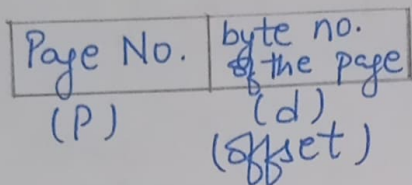 Page No.
byte no.
of the page
(P)
(d)
(offset)